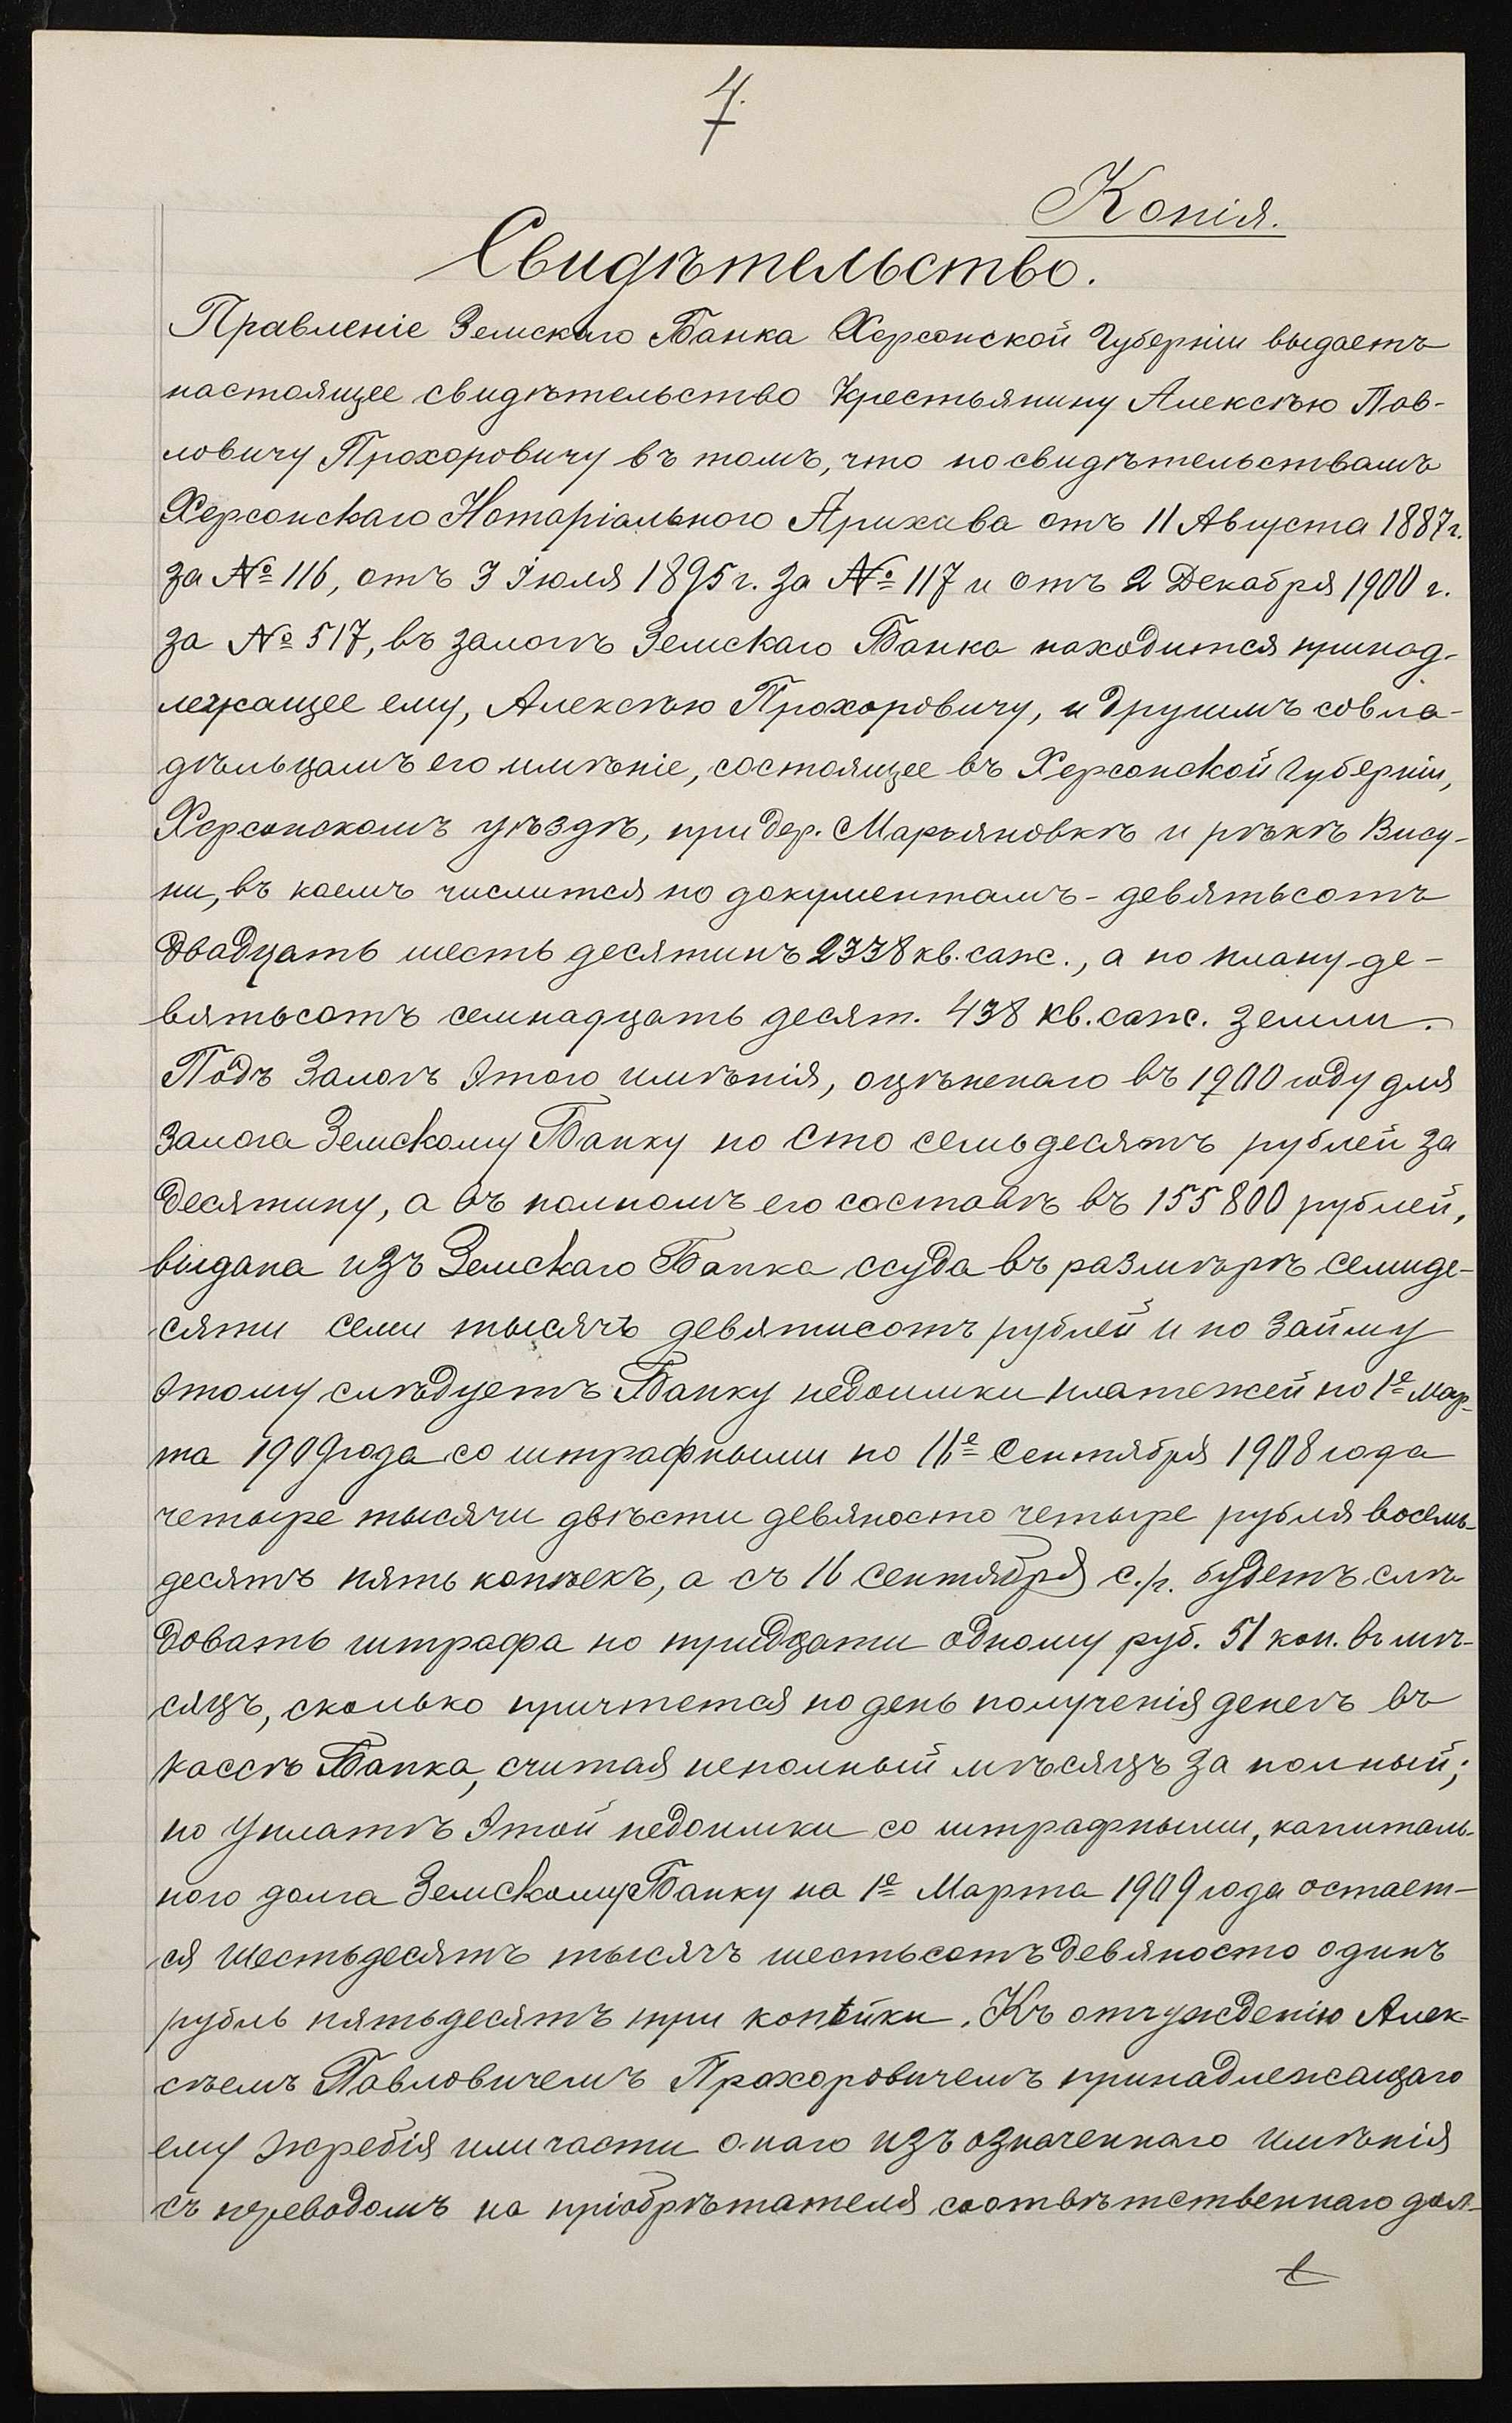 4.
7
Копія.
Свидѣтельство.
Правленіе Земскаго Банка Херсонской Губерніи выдаетъ
настоящее свидѣтельство Крестьянину Алексѣю Пав-
ловичу Прохоровичу въ томъ, что по свидѣтельствамъ
Херсонскаго Нотаріальнаго Архива отъ 11 Августа 1887 г.
за № 116, отъ 3 Іюля 1895 г. за № 117 и отъ 2 Декабря 1900 г.
за № 517, въ залогѣ Земскаго Банка находится принад-
лежащее ему, Алексѣю Прохоровичу, и другимъ совла-
дѣльцамъ его имѣніе, состоящее въ Херсонской Губерніи,
Херсонскомъ уѣздѣ, при дер. Марьяновкѣ и рѣкѣ Вису-
ни, въ коемъ числится по документамъ - девятьсотъ
двадцать шесть десятинъ 2338 кв. саж., а по плану - де-
вятьсотъ семнадцать десят. 438 кв. саж. земли.
Подъ Залогъ этого имѣнія, оцѣненаго въ 1900 году для
залога Земскому Банку по сто семьдесятъ рублей за
десятину, а въ полномъ его составѣ въ 155800 рублей,
выдана изъ Земскаго Банка ссуда въ размѣрѣ семиде-
сяти семи тысячъ девятисотъ рублей и по займу
этому слѣдуетъ Банку недоимки платежей по 1е Мар-
та 1909 года со штрафными по 16е Сентября 1908 года
четыре тысячи двѣсти девяносто четыре рубля восемь-
десятъ пять копѣекъ, а съ 16 сентября с.г. будетъ слѣ-
довать штрафа по тридцати одному руб. 51 коп. въ мѣ-
сяцъ, сколько причтется по день полученія денегъ въ
кассѣ Банка, считая неполный мѣсяцъ за полный;
по уплатѣ этой недоимки со штрафными, капиталь-
ного долга Земскому Банку на 1е Марта 1909 года остает-
ся шестьдесятъ тысячъ шестьсотъ девяносто одинъ
рубль пятьдесятъ три копѣйки. Къ отчужденію Алек-
сѣемъ Павловичемъ Прохоровичемъ принадлежащаго
ему жребія или части онаго изъ означеннаго имѣнія
съ переводомъ на пріобрѣтателя соотвѣтственнаго дол-